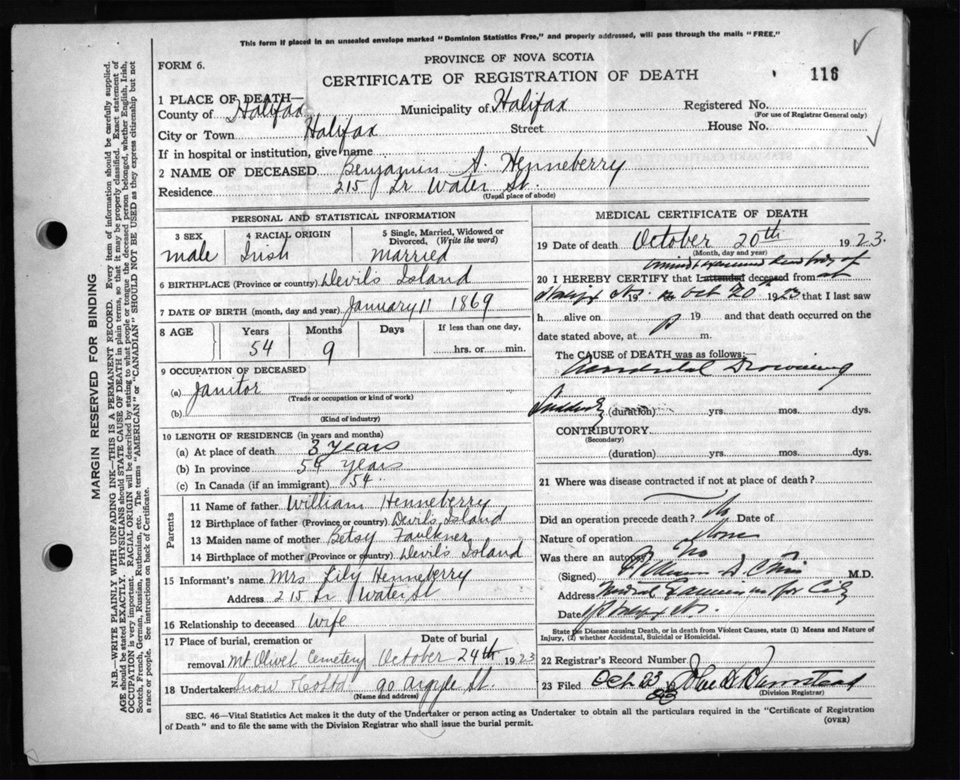 This form if placed in an unsealed envelope marked "Dominion Statistics Free," and properly addressed, will pass through the mails "FREE."
FORM 6.
PROVINCE OF NOVA SCOTIA
CERTIFICATE OF REGISTRATION OF DEATH
116
1 PLACE OF DEATH—
County of Halifax Municipality of Halifax Registered No.
(For use of Registrar General only)
City or Town Halifax Street House No.
If in hospital or institution, give name
2 NAME OF DECEASED Benjamin A. Henneberry
Residence 215 Lr Water St.
(Usual place of abode)
PERSONAL AND STATISTICAL INFORMATION
3 SEX 4 RACIAL ORIGIN 5 Single, Married, Widowed or Divorced, (Write the word)
male Irish Married
6 BIRTHPLACE (Province or country) Devils Island
7 DATE OF BIRTH (month, day and year) January 11 1869
8 AGE Years Months Days If less than one day,
54 9 hrs. or min.
9 OCCUPATION OF DECEASED
(a) Janitor
(Trade or occupation or kind of work)
(b)
(Kind of industry)
10 LENGTH OF RESIDENCE (in years and months)
(a) At place of death 3 years
(b) In province 54 years
(c) In Canada (if an immigrant) 54.
Parents
11 Name of father William Henneberry
12 Birthplace of father (Province or country) Devils Island
13 Maiden name of mother Betsy Faulkner
14 Birthplace of mother (Province or country) Devils Island
15 Informant's name Mrs Lily Henneberry
Address 215 Lr Water St
16 Relationship to deceased wife
17 Place of burial, cremation or removal Mt Olivet Cemetery
Date of burial October 24th 1923
18 Undertaker Snow 90 Argyle St.
(Name and address)
MEDICAL CERTIFICATE OF DEATH
19 Date of death October 20th 1923.
(Month, day and year)
20 I HEREBY CERTIFY that I attended deceased from
Halifax N.S. 19 to Oct 20 1923 that I last saw
h alive on 19 and that death occurred on
date stated above, at m.
The CAUSE of DEATH was as follows:
Accidental Drowning
Suddenly (duration) yrs. mos. dys.
CONTRIBUTORY
(Secondary)
(duration) yrs. mos. dys.
21 Where was disease contracted if not at place of death?
Did an operation precede death? No Date of
Nature of operation None
Was there an autopsy No
(Signed) M.D.
Address Medical Examiner for City
Date Halifax N.S.
State the Disease causing Death, or in death from Violent Causes, state (1) Means and Nature of Injury, (2) whether Accidental, Suicidal or Homicidal.
22 Registrar's Record Number
23 Filed Oct 23
(Division Registrar)
SEC. 46—Vital Statistics Act makes it the duty of the Undertaker or person acting as Undertaker to obtain all the particulars required in the "Certificate of Registration of Death" and to file the same with the Division Registrar who shall issue the burial permit.
(OVER)
MARGIN RESERVED FOR BINDING
N.B.—WRITE PLAINLY WITH UNFADING INK—THIS IS A PERMANENT RECORD. Every item of information should be carefully supplied.
AGE should be stated EXACTLY. PHYSICIANS should STATE CAUSE OF DEATH in plain terms, so that it may be properly classified. Exact statement of
OCCUPATION is very important. RACIAL ORIGIN will be described by stating to what people or tongue the deceased person belonged, whether English, Irish,
Scotch, French, German, Russian, Ruthenian, etc. The terms "AMERICAN" or "CANADIAN" SHOULD NOT BE USED as they express citizenship but not
a race or people. See instructions on back of Certificate.